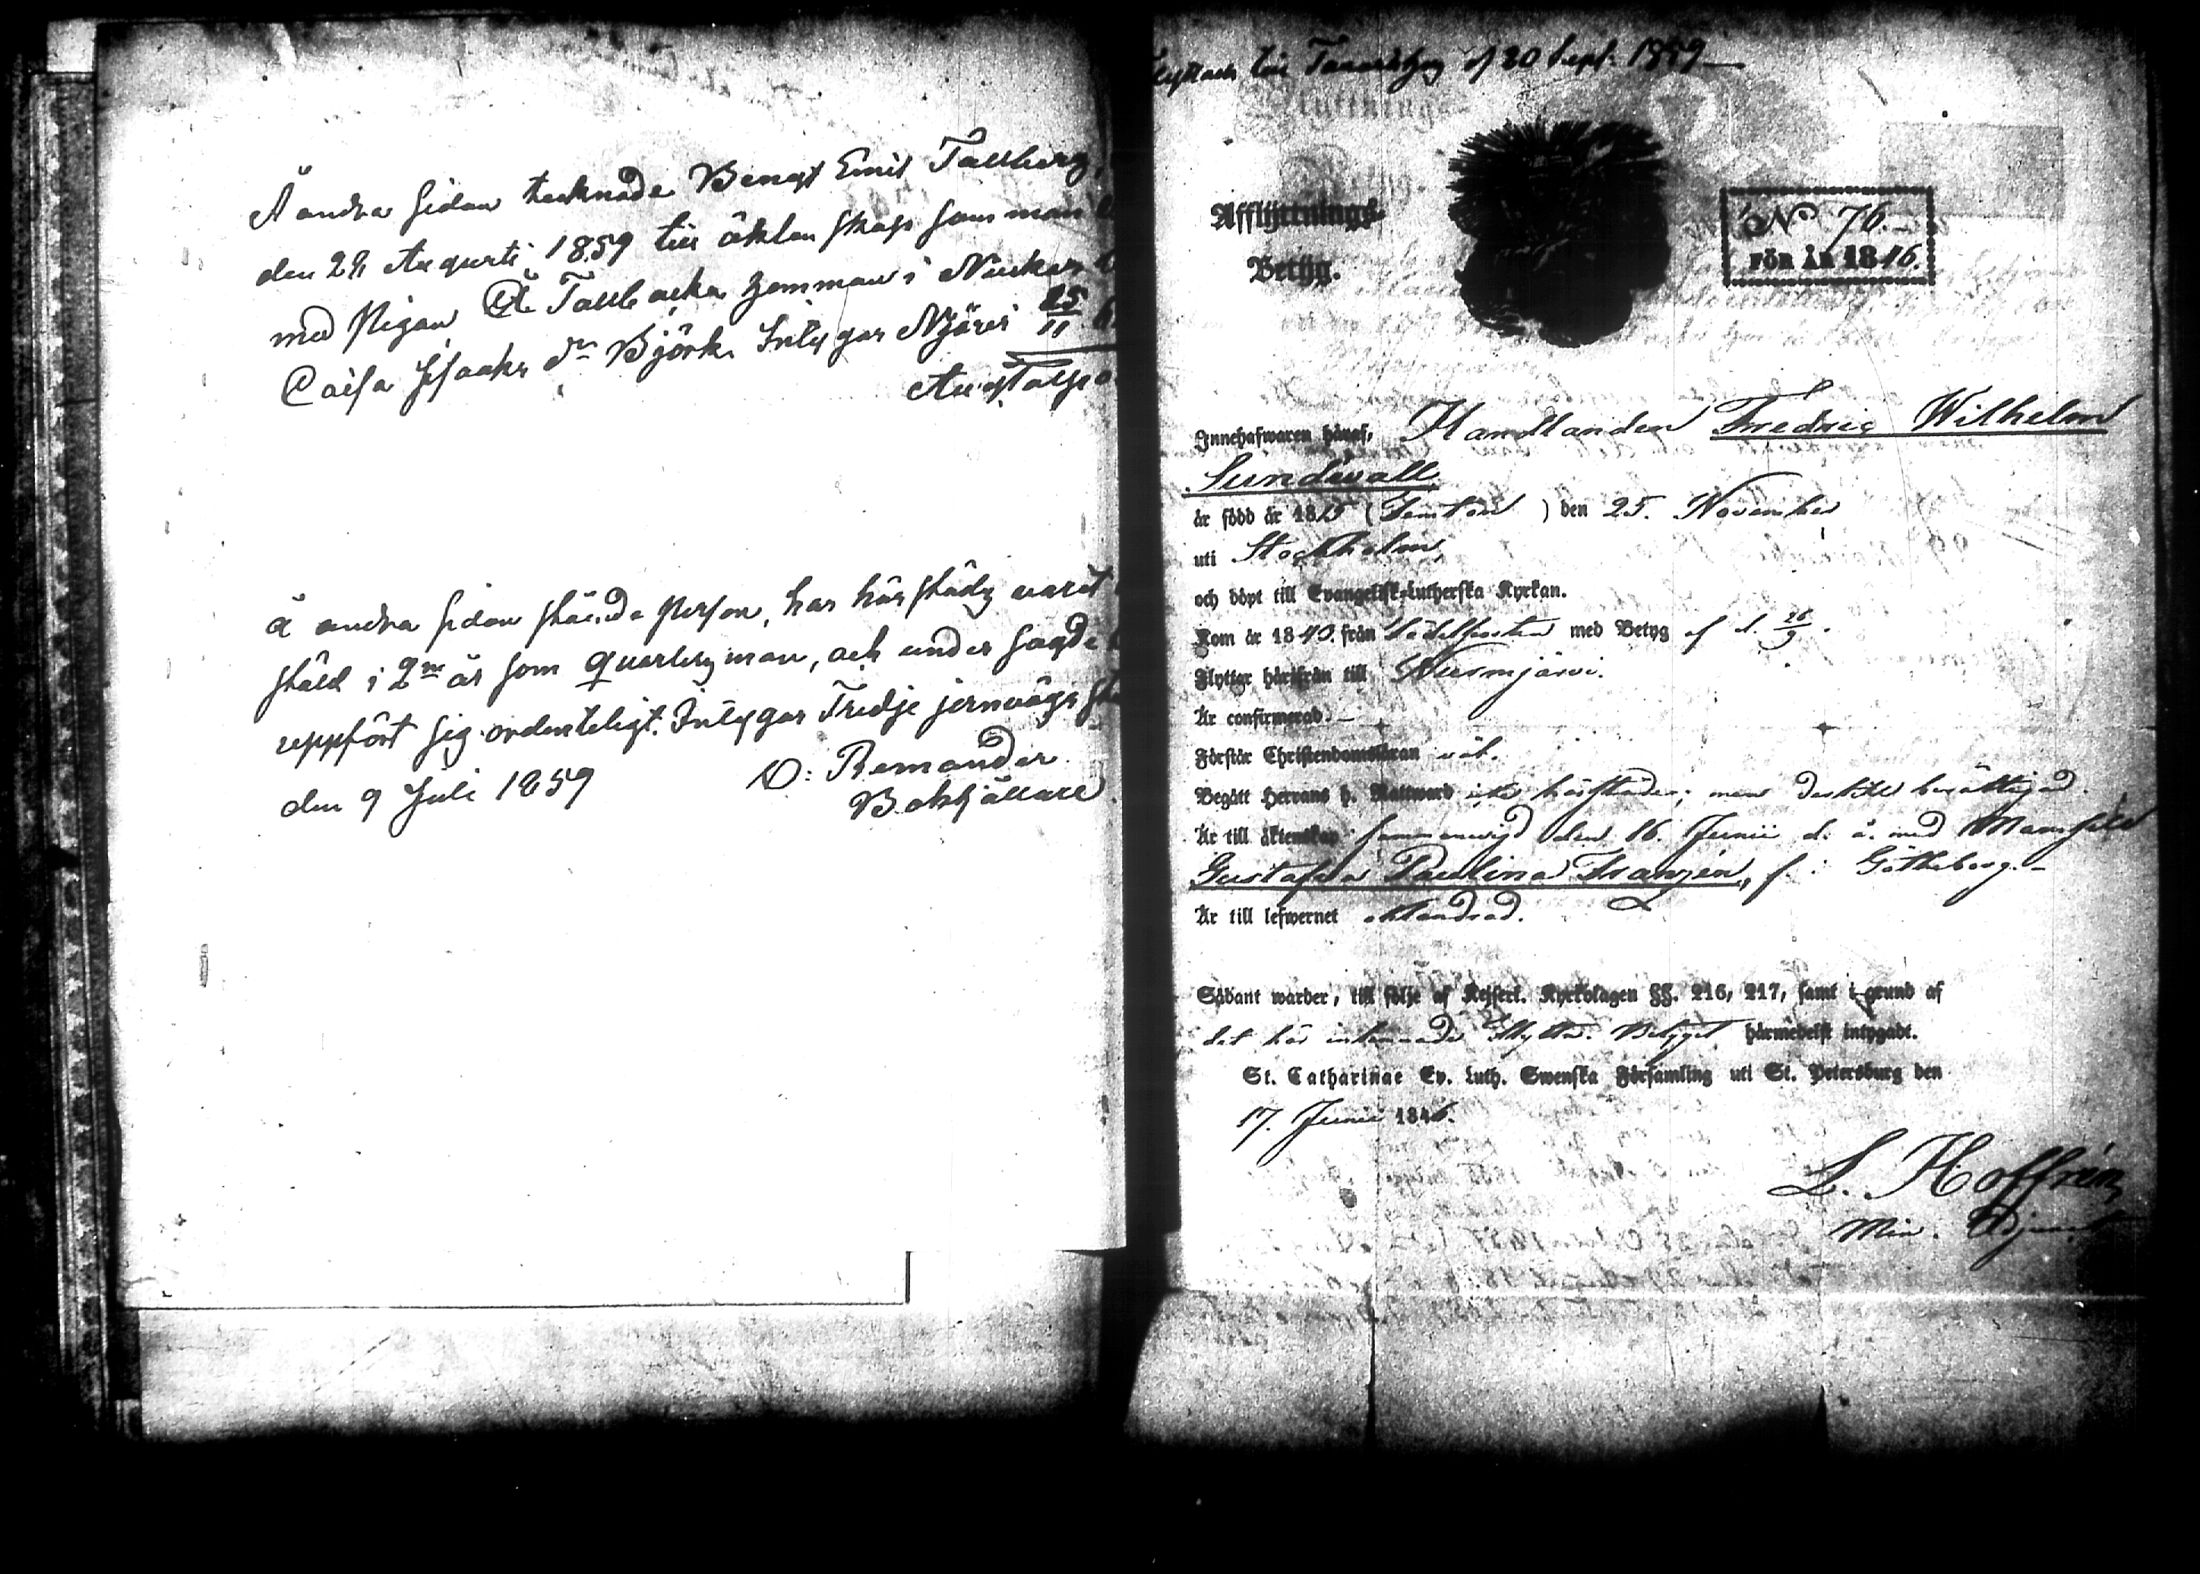 Å andra sidan tecknade Bengt Emil Tallberg,
den 29 Augusti 1859 till äktenskap samman
med Pigan Tallbacka hemman i Nuckar
Caisa Isaaks dr Björk. Intygar Njärvi 25/11
Aug Tallp
å andra sidan stående person, har härstädz varit
stäld i 2ne år som quarteryman, och under sagde
uppfört sig ordenteligt. Intygar Tredje jernvägs
den 9 Juli 1859 D: Remander
Bokhållare
till af 20 Sept. 1859
Afflyttnings-
Betyg.
No 76.
FÖR ÅR 1846.
Innehafwaren häraf, Handlanden Fredric Wilhelm
Sundwall
är född år 1815 (Femton) den 25. November
uti Stockholm
och döpt till Evangelisk-Lutherska Kyrkan.
Kom år 1843. från med Betyg af d. 26/9.
Flyttar härifrån till Nurmjärvi.
Är confirmerad. —
Förstår Christendomsläran väl.
Begått Herrans h. Nattward icke härstädes; men dertill berättigad.
Är till äktenskap sammanvigd den 16. Junii d. å. med Mamsell
Gustafva Paulina Franzén, f. i Götheborg. —
Är till lefwernet oklandrad.
Sådant warder, till följe af Kejserl. Kyrkolagen §§. 216, 217, samt i grund af
det här inlemnade Flyttn. Betyget härmedelst intygadt.
St. Catharinae Ev. Luth. Swenska Församling uti St. Petersburg den
17. Junii 1846.
L. Hoffrén
Min. Adjunct